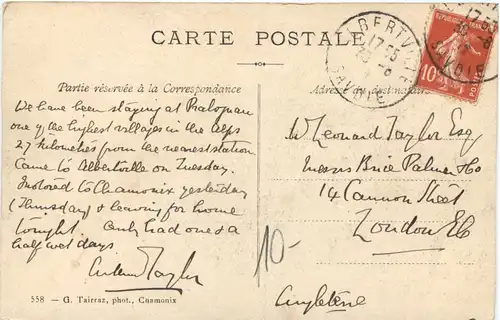 CARTE POSTALE
Partie réservée à la Correspondance
Adresse du destinataire
ALBERTVILLE
17 25
SAVOIE
10
POSTES
We have been staying at Pralognan
one of the highest villages in the Alps
27 kilometres from the nearest station
Came to Albertville on Tuesday.
Motored to Chamonix yesterday
(Thursday) & leaving for home
tonight. Only had one & a
half wet days
Taylor
W Leonard Taylor Esq
Messrs Brice Palmer & Co
14 Cannon Street
London EC
Angleterre
10-
558 — G. Tairraz, phot., Chamonix